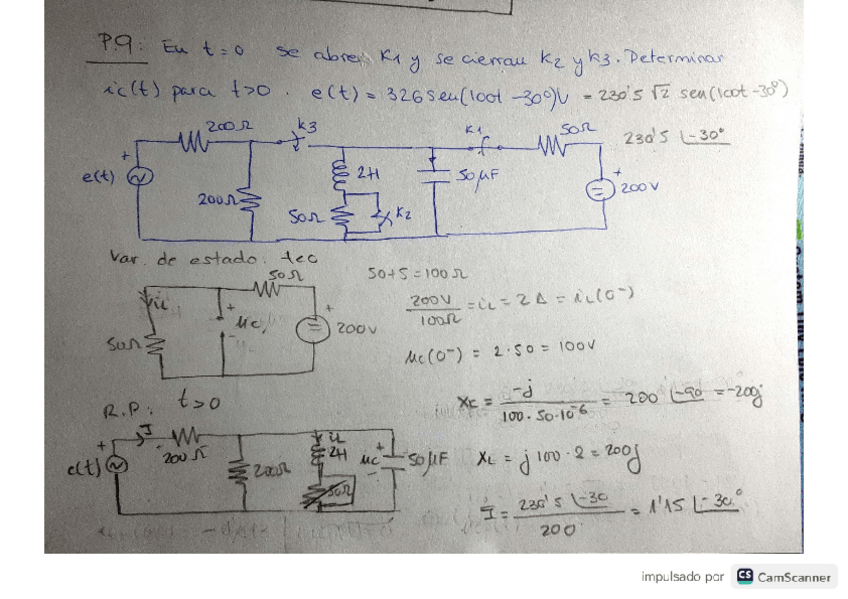 P.9: En t=0 se abre K1 y se cierran K2 y K3. Determinar
ic(t) para t>0. e(t) = 326 sen(100t -30º)V = 230'5 √2 sen(100t -30º)
200Ω
K3
K1
50Ω
230'5 ∟-30º
e(t)
+
200Ω
2H
50Ω
K2
50μF
+
200V
Var. de estado: t<0
50Ω
50+5=100Ω
iL
+
uc
-
50Ω
+
200V
200V/100Ω = iL = 2A = iL(0⁻)
uc(0⁻) = 2·50 = 100V
R.P: t>0
Xc = -j/(100·50·10⁻⁶) = 200 ∟-90 = -200j
I
+
e(t)
200Ω
200Ω
iL
2H
50Ω
uc
+
-
50μF
XL = j100·2 = 200j
I = 230'5 ∟-30/200 = 1'15 ∟-30º
impulsado por CS CamScanner